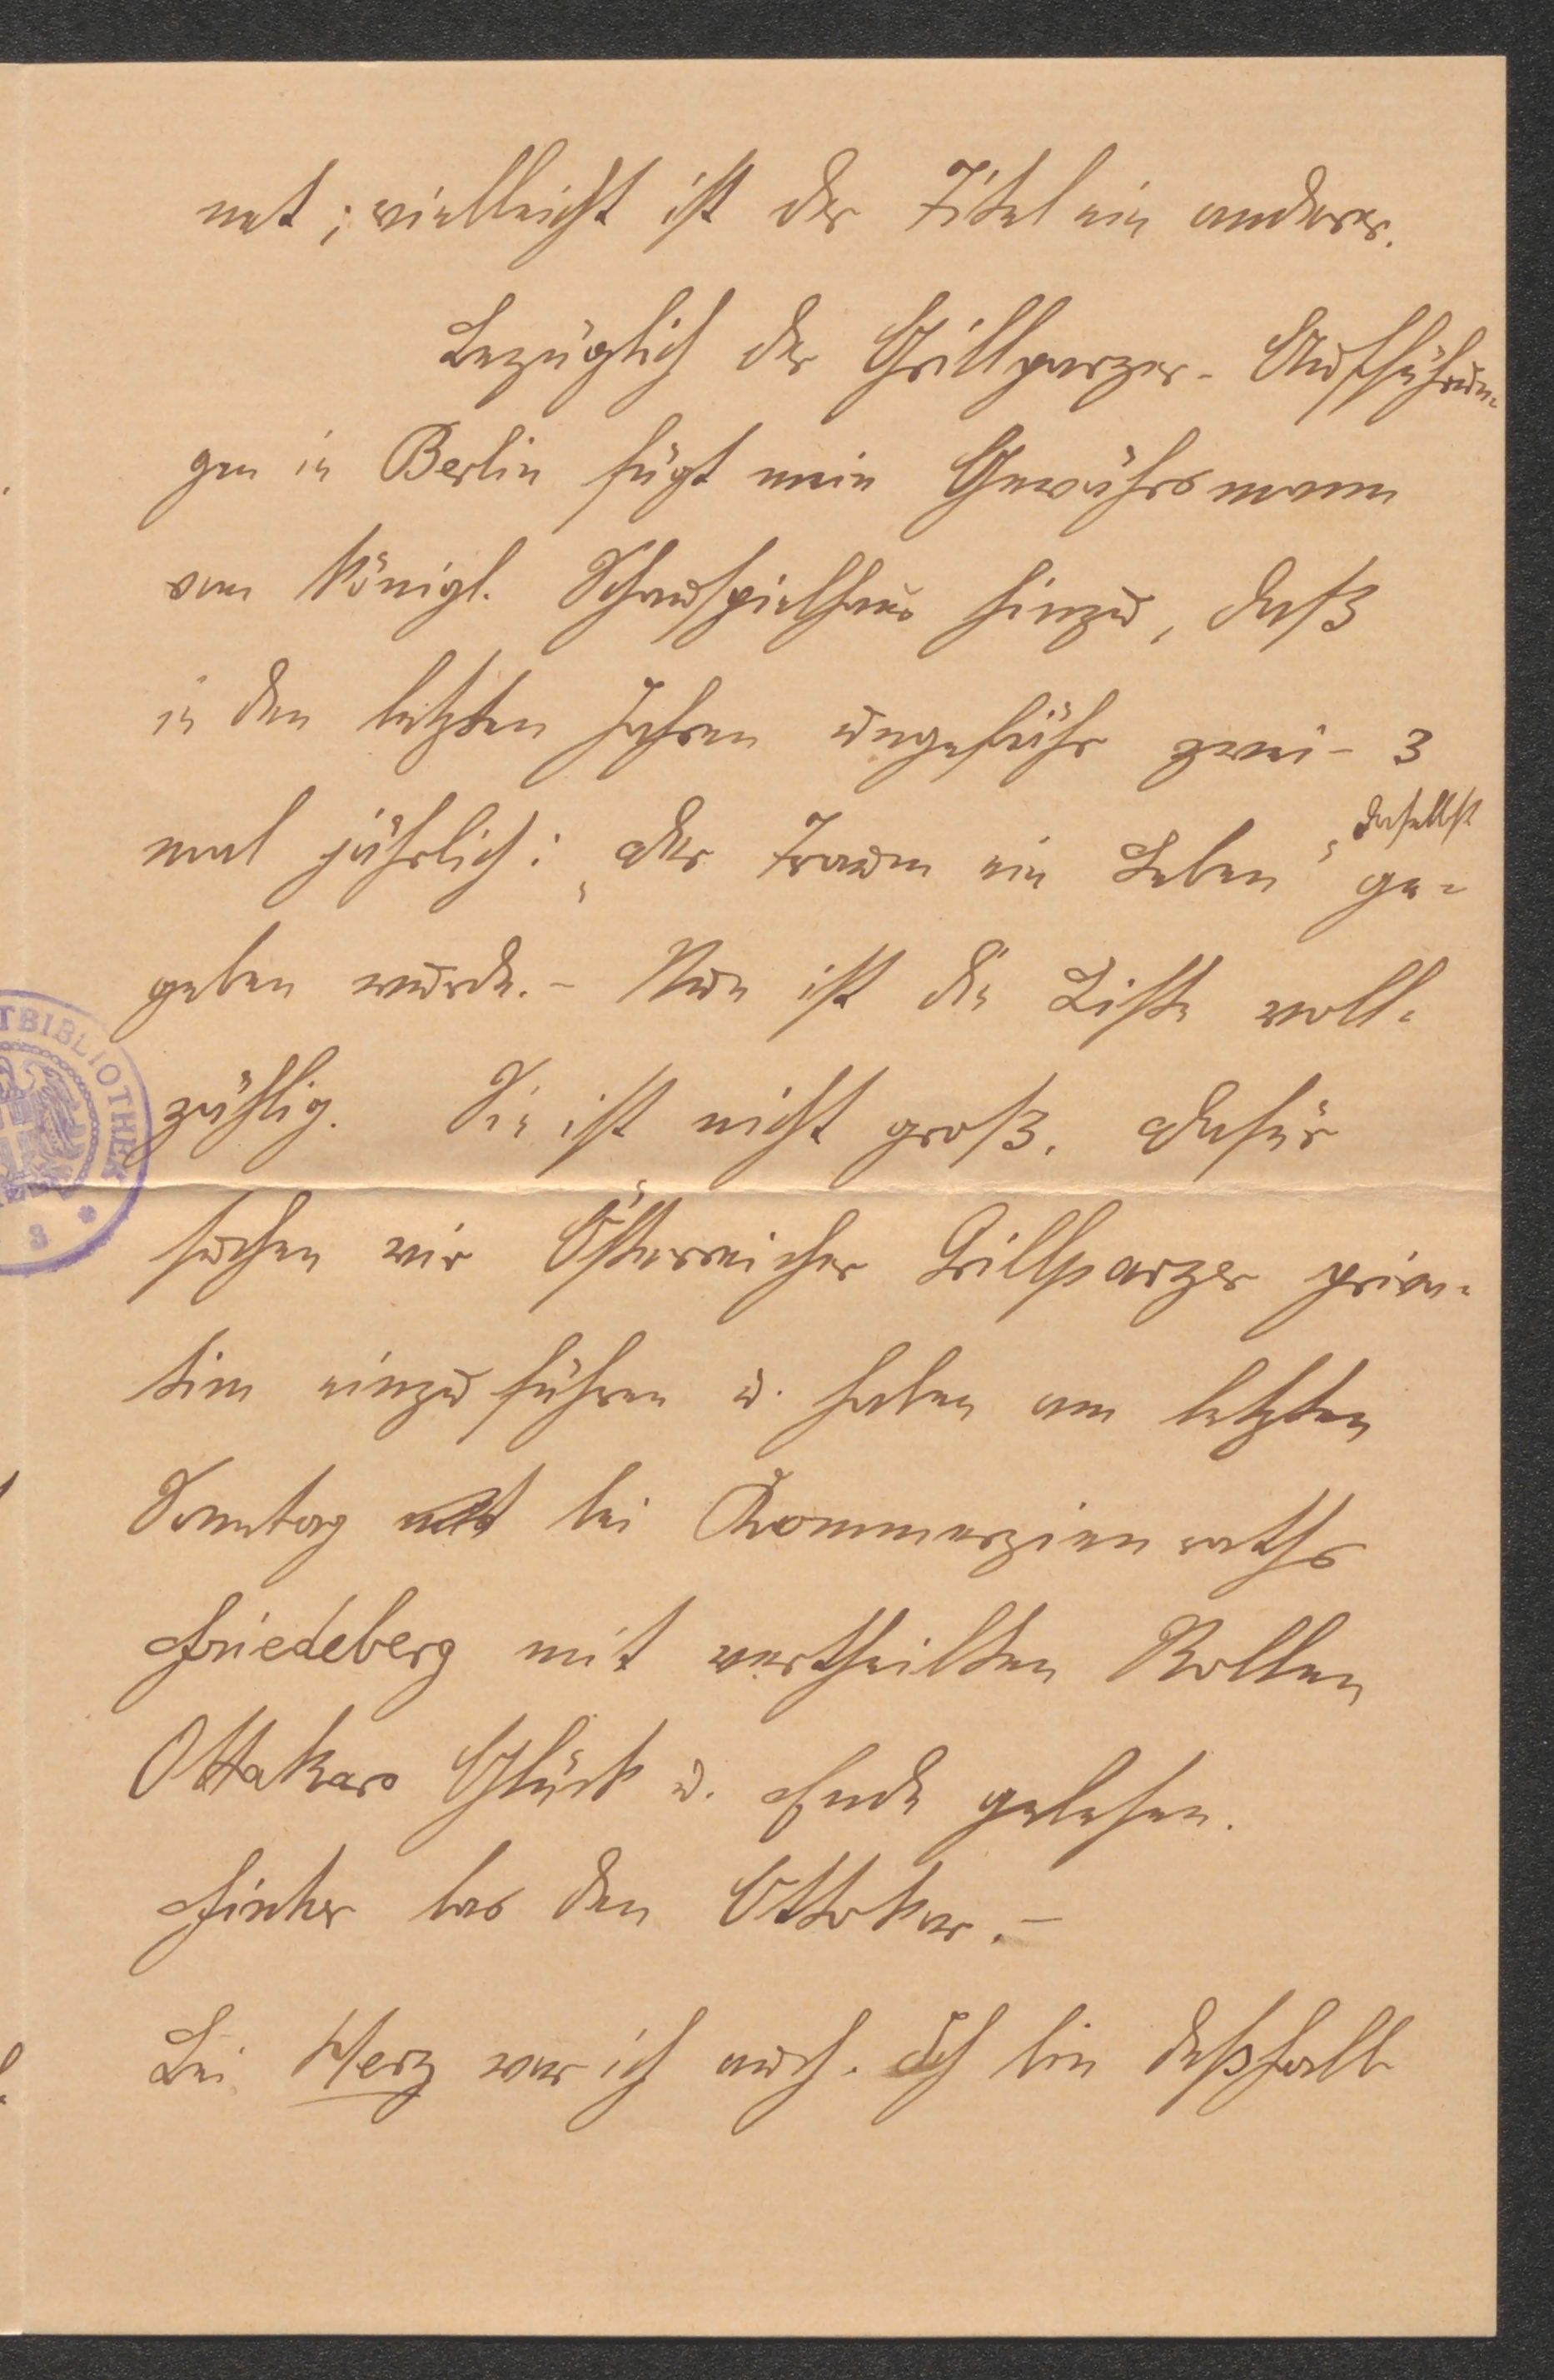 net; vielleicht ist der Titel ein anderer.
Bezüglich der Grillparzer-Aufführun-
gen in Berlin fügt mein Gewährsmann
vom Königl. Schauspielhaus hinzu, daß
in den letzten Jahren ungefähr zwei- 3
mal jährlich: „Der Traum ein Leben“ daselbst ge-
geben wurde. - Nun ist die Liste voll-
zählig. Sie ist nicht groß. Dafür
suchen wir Österreicher Grillparzer priva-
tim einzuführen u. haben am letzten
Sonntag bei Kommerzienraths
Friedeberg mit vertheilten Rollen
Ottokars Glück u. Ende gelesen.
las den Ottokar. -
Bei Herz war ich auch. Ich bin deßhalb
TBIBLIOTHEK